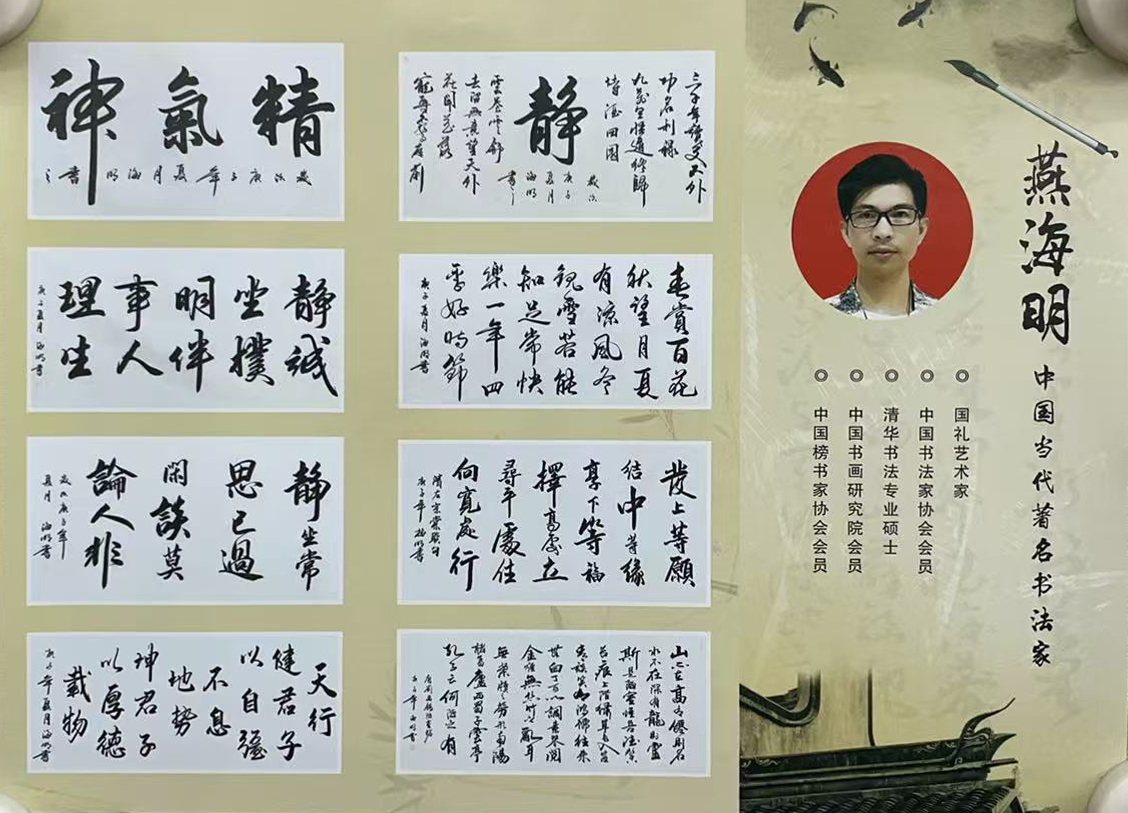 燕海明
中国当代著名书法家
国礼艺术家
中国书法家协会会员
清华书法专业硕士
中国书画研究院会员
中国榜书家协会会员
精氣神
歲次庚子年夏月海明書之
三千年讀史不外
功名利禄
九萬里悟道終歸
詩酒田園
静
歲次
庚子
夏月
海明
書之
雲卷雲舒
去留無意望天外
花開花落
静誠
坐撲
明伴
事人
理生
庚子夏月海明書
春賞百花
秋望月夏
有凉風冬
觀雪若能
知足常快
樂一年四
季好時節
庚子夏月海明書
静坐常
思己過
閑談莫
論人非
歲次庚子年
夏月海明書
發上等願
結中等緣
享下等福
擇高處立
尋平處住
向寬處行
清左宗棠聯句
庚子年海明書
天行
健君子
以自强
不息
地勢
坤君子
以厚德
載物
庚子年夏月海明書
山不在高有僊則名
水不在深有龍則靈
斯是陋室惟吾德馨
金經無絲竹之亂耳
無案牘之勞形南陽
諸葛廬西蜀子雲亭
孔子云何陋之有
唐劉禹錫陋室銘
庚子年海明書